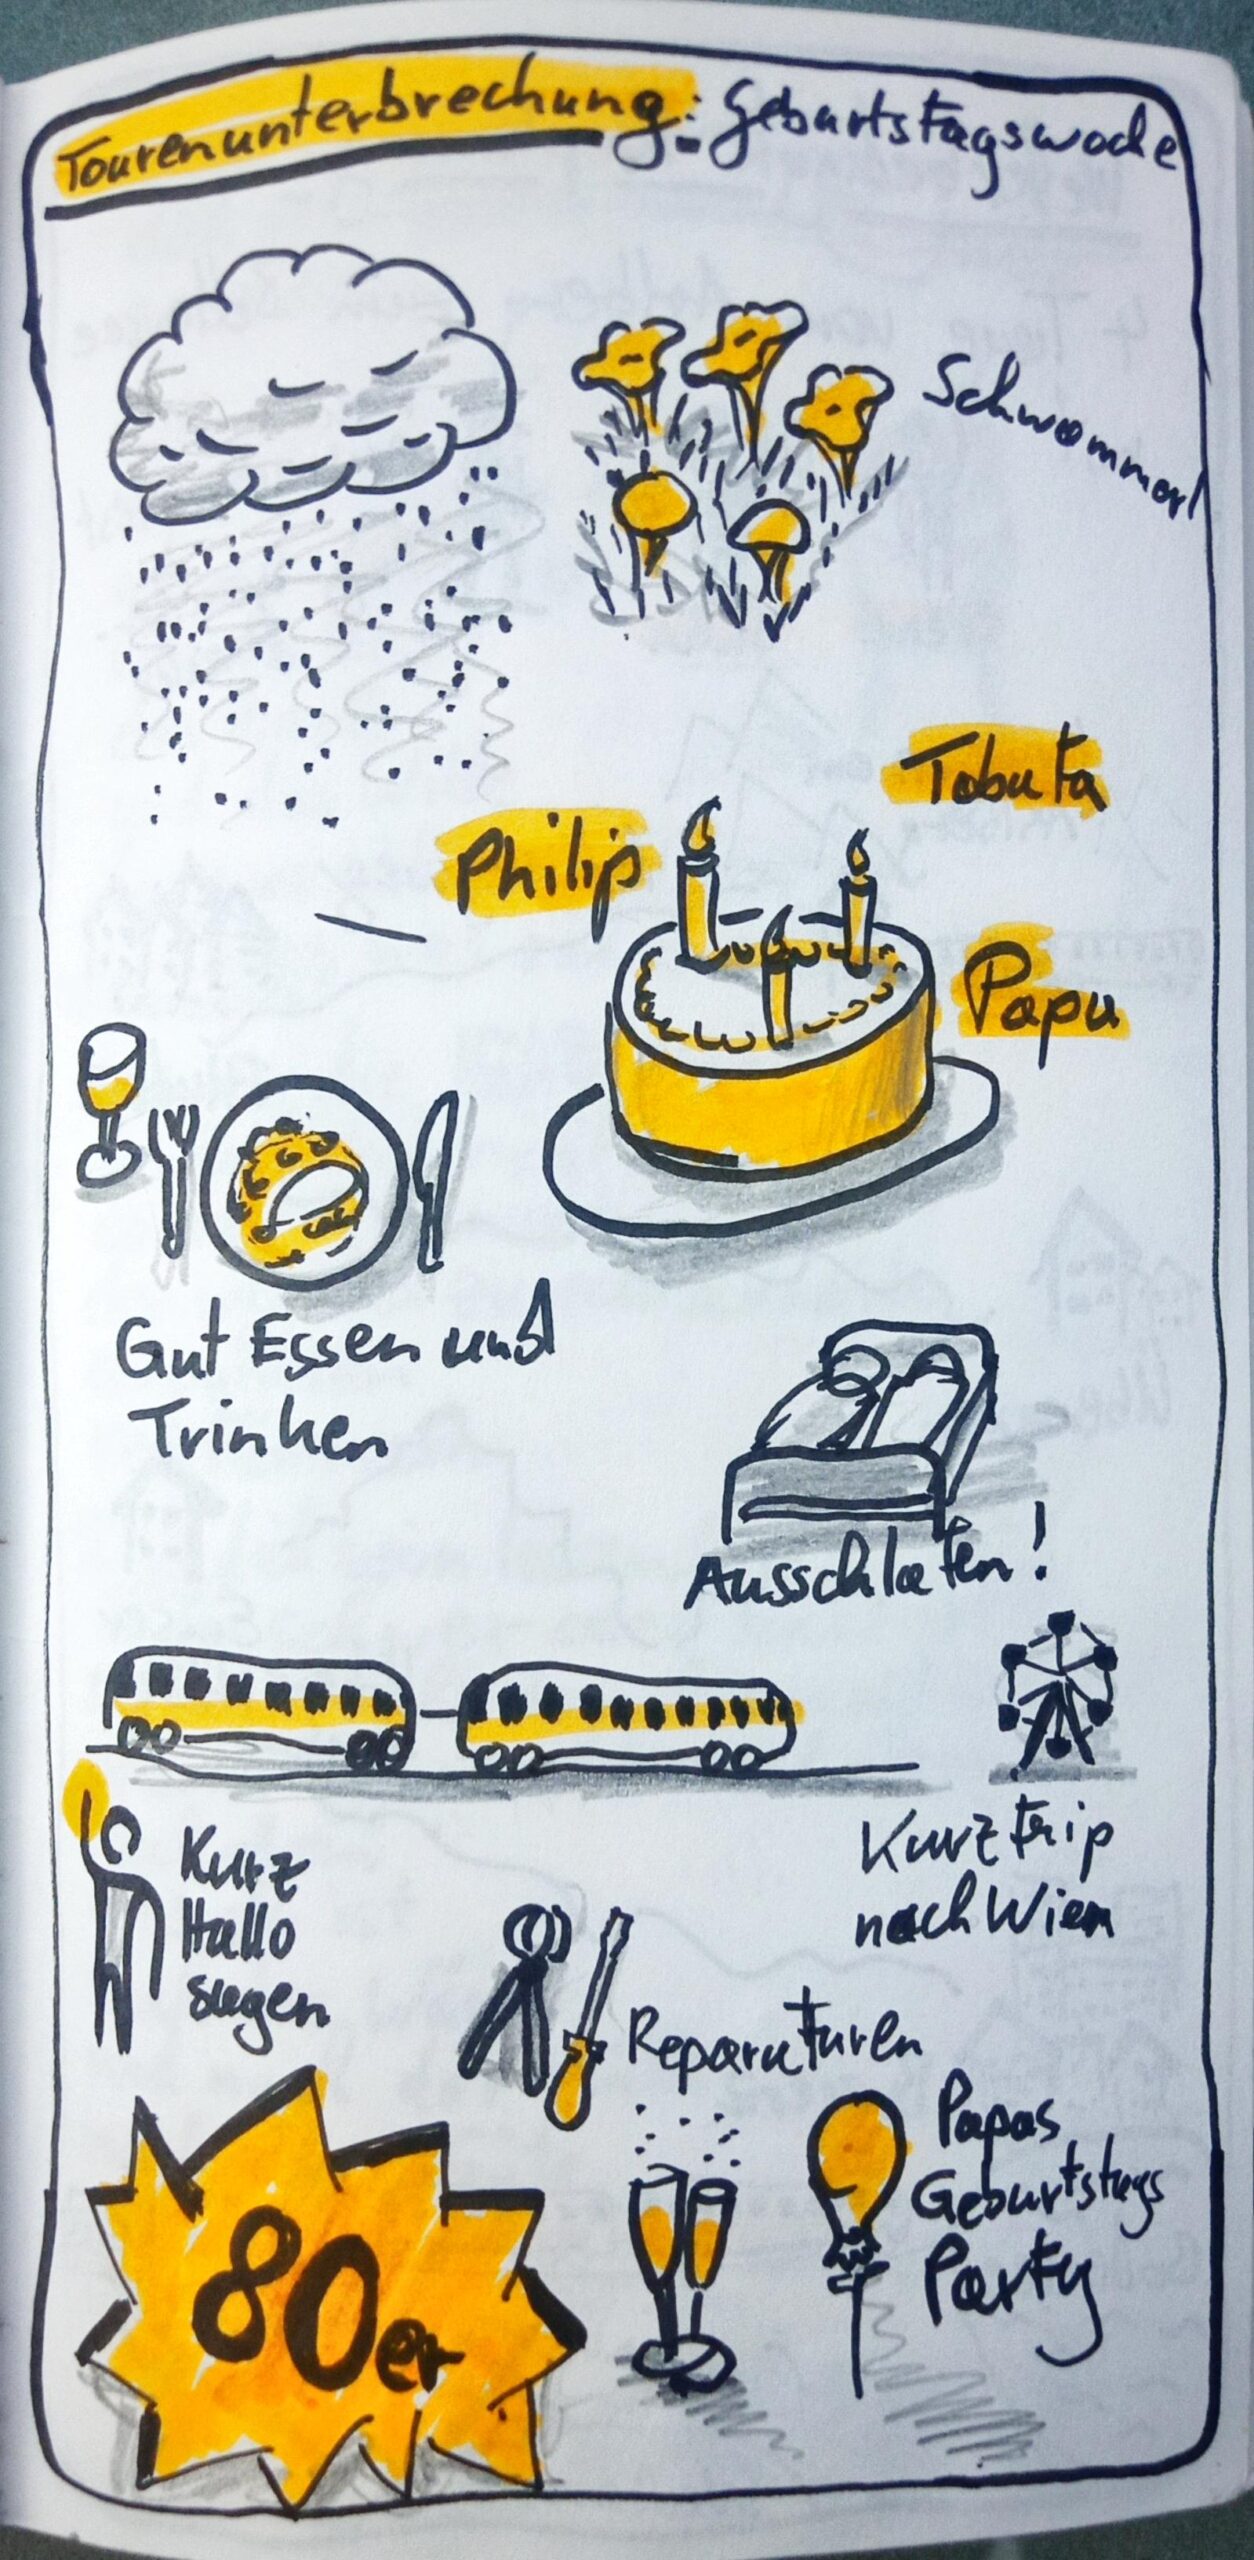 Tourenunterbrechung: Geburtstagswoche
Schwammerl
Tabuta
Philip
Papa
Gut Essen und
Trinken
Ausschlafen!
Kurztrip
nach Wien
Kurz
Hallo
sagen
Reparaturen
Papas
Geburtstags
Party
80er